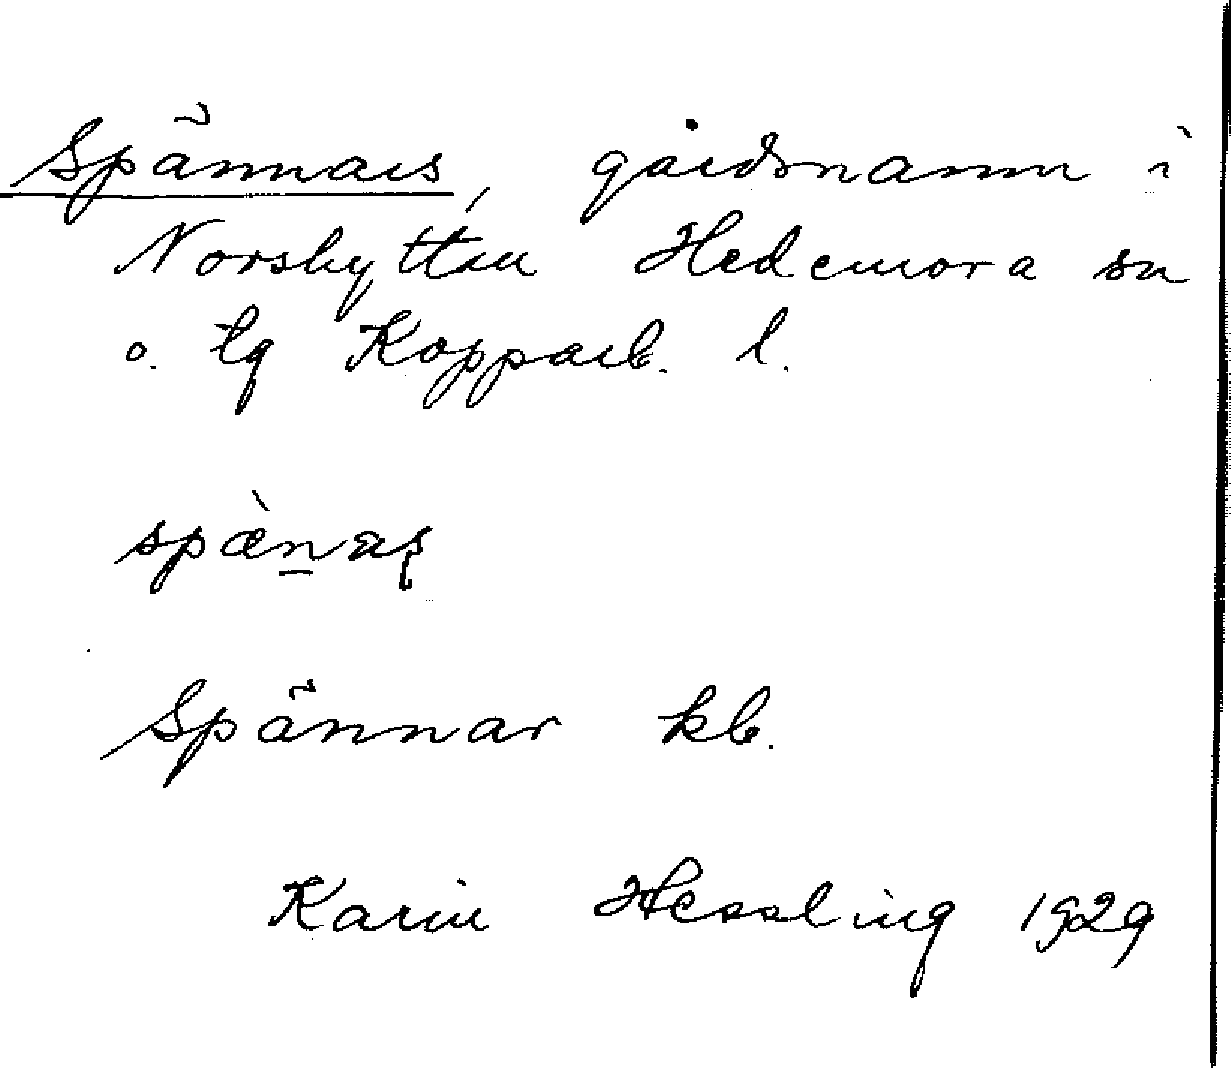 Spännars, gårdsnamn i
Norshyttan Hedemora sn
o. tg Kopparb. l.
spæ̀n̲aṣ
Spännar kb.
Karin Hessling 1929